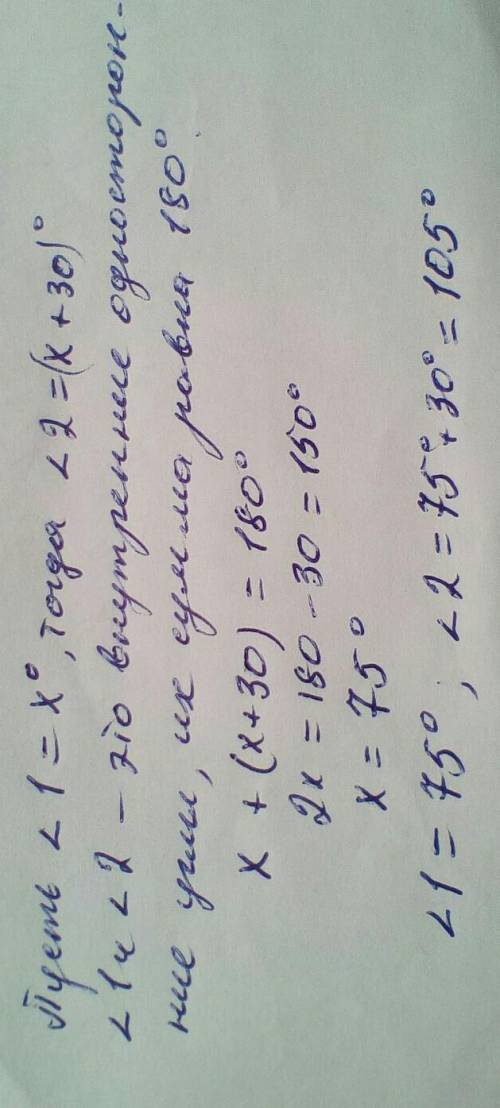 Пусть ∠1 = x°, тогда ∠2 = (x + 30)°
∠1 и ∠2 – это внутренние односторон-
ние углы, их сумма равна 180°.
x + (x+30) = 180°
2x = 180 - 30 = 150°
x = 75°
∠1 = 75°; ∠2 = 75° + 30° = 105°